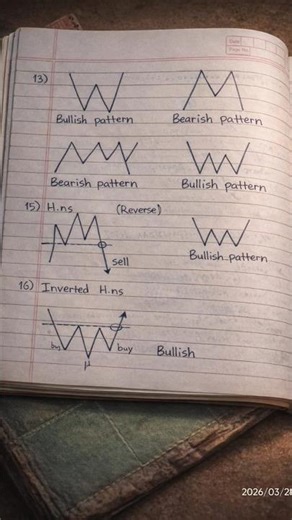 Date
Page No.
13)
Bullish pattern Bearish pattern
Bearish pattern Bullish pattern
15) H.ns (Reverse)
sell Bullish pattern
16) Inverted H.ns
buy Bullish
2026/03/28